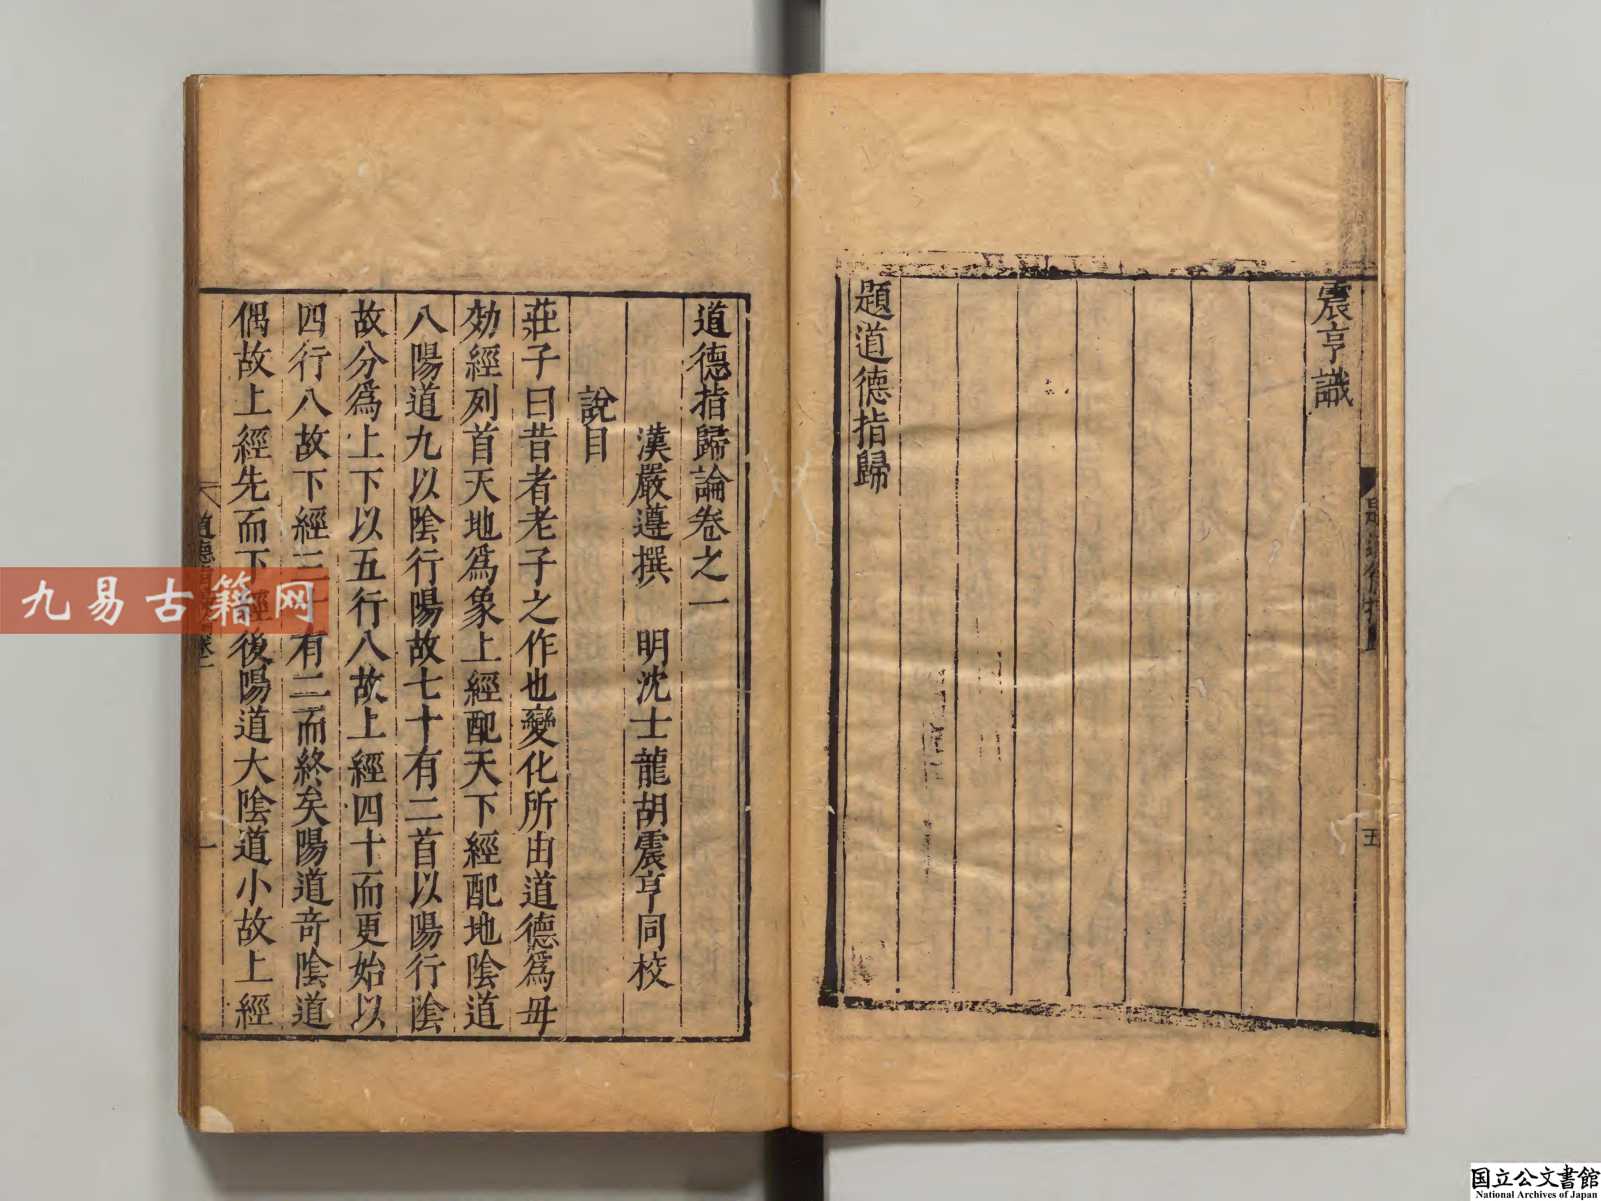 震亨識
題道德指歸
五
道德指歸論卷之一
漢嚴遵撰　明沈士龍胡震亨同校
說目
莊子曰昔者老子之作也變化所由道德爲毋
効經列首天地爲象上經配天下經配地陰道
八陽道九以陰行陽故七十有二首以陽行陰
故分爲上下以五行八故上經四十而更始以
四行八故下經三十有二而終矣陽道奇陰道
偶故上經先而下經後陽道大陰道小故上經
九易古籍网
国立公文書館
National Archives of Japan